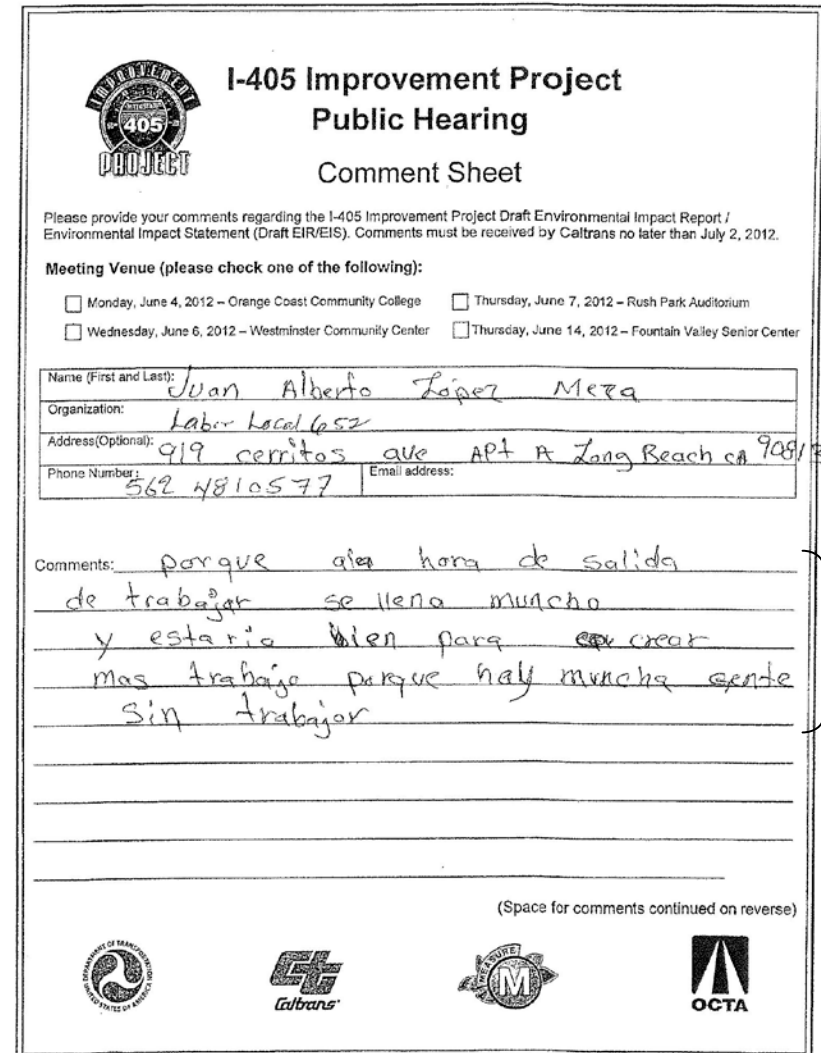 IMPROVEMENT
405
PROJECT
I-405 Improvement Project
Public Hearing
Comment Sheet
Please provide your comments regarding the I-405 Improvement Project Draft Environmental Impact Report /
Environmental Impact Statement (Draft EIR/EIS). Comments must be received by Caltrans no later than July 2, 2012.
Meeting Venue (please check one of the following):
Monday, June 4, 2012 – Orange Coast Community College
Thursday, June 7, 2012 – Rush Park Auditorium
Wednesday, June 6, 2012 – Westminster Community Center
Thursday, June 14, 2012 – Fountain Valley Senior Center
Name (First and Last): Juan Alberto López Meza
Organization: Labor Local 652
Address(Optional): 919 cerritos ave APt A Long Beach cA
Phone Number: 562 4810577 Email address:
Comments: porque hora de salida
de trabajar se llena muncho
y estaria bien para crear
mas trabajo porque hay muncha gente
Sin trabajar
(Space for comments continued on reverse)
DEPARTMENT OF TRANSPORTATION
UNITED STATES OF AMERICA
Caltrans
MEASURE
M
OCTA